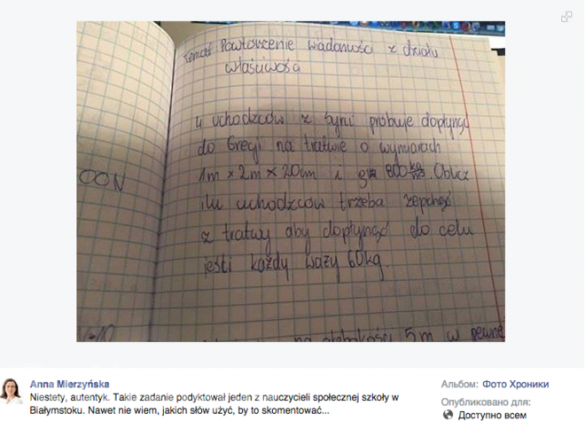 Temat: Powtórzenie wiadomości z działu
właściwości
4 uchodźców z Syrii próbuje dopłynąć
do Grecji na tratwie o wymiarach
1m × 2m × 20cm i 800 kg/m³. Oblicz
ilu uchodźców trzeba zepchnąć
z tratwy aby dopłynąć do celu
jeśli każdy waży 60kg
głębokości 5m w pewnej
Anna Mierzyńska
Niestety, autentyk. Takie zadanie podyktował jeden z nauczycieli społecznej szkoły w
Białymstoku. Nawet nie wiem, jakich słów użyć, by to skomentować...
Альбом: Фото Хроники
Опубликовано для:
Доступно всем